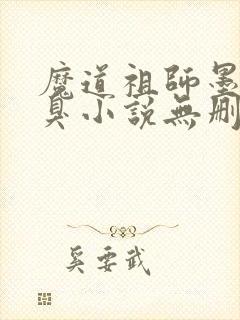 魔道祖師墨
臭小說無刪
奚要武